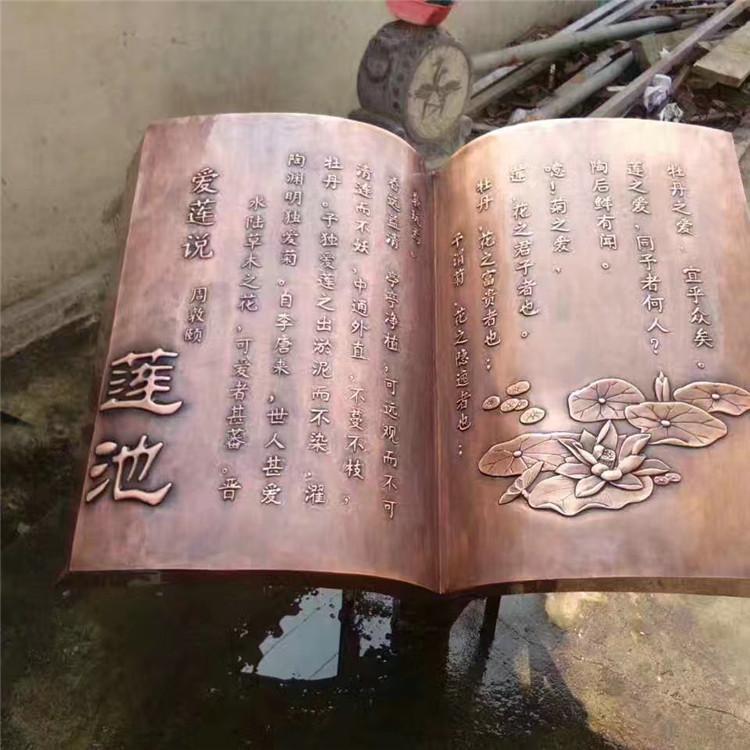 莲池
爱莲说 周敦颐
水陆草木之花,可爱者甚蕃。晋
陶渊明独爱菊。自李唐来,世人甚爱
牡丹。予独爱莲之出淤泥而不染,濯
清涟而不妖,中通外直,不蔓不枝,
香远益清,亭亭净植,可远观而不可
亵玩焉。
予谓菊,花之隐逸者也;
牡丹,花之富贵者也;
莲,花之君子者也。
噫!菊之爱,
陶后鲜有闻。
莲之爱,同予者何人?
牡丹之爱,宜乎众矣。